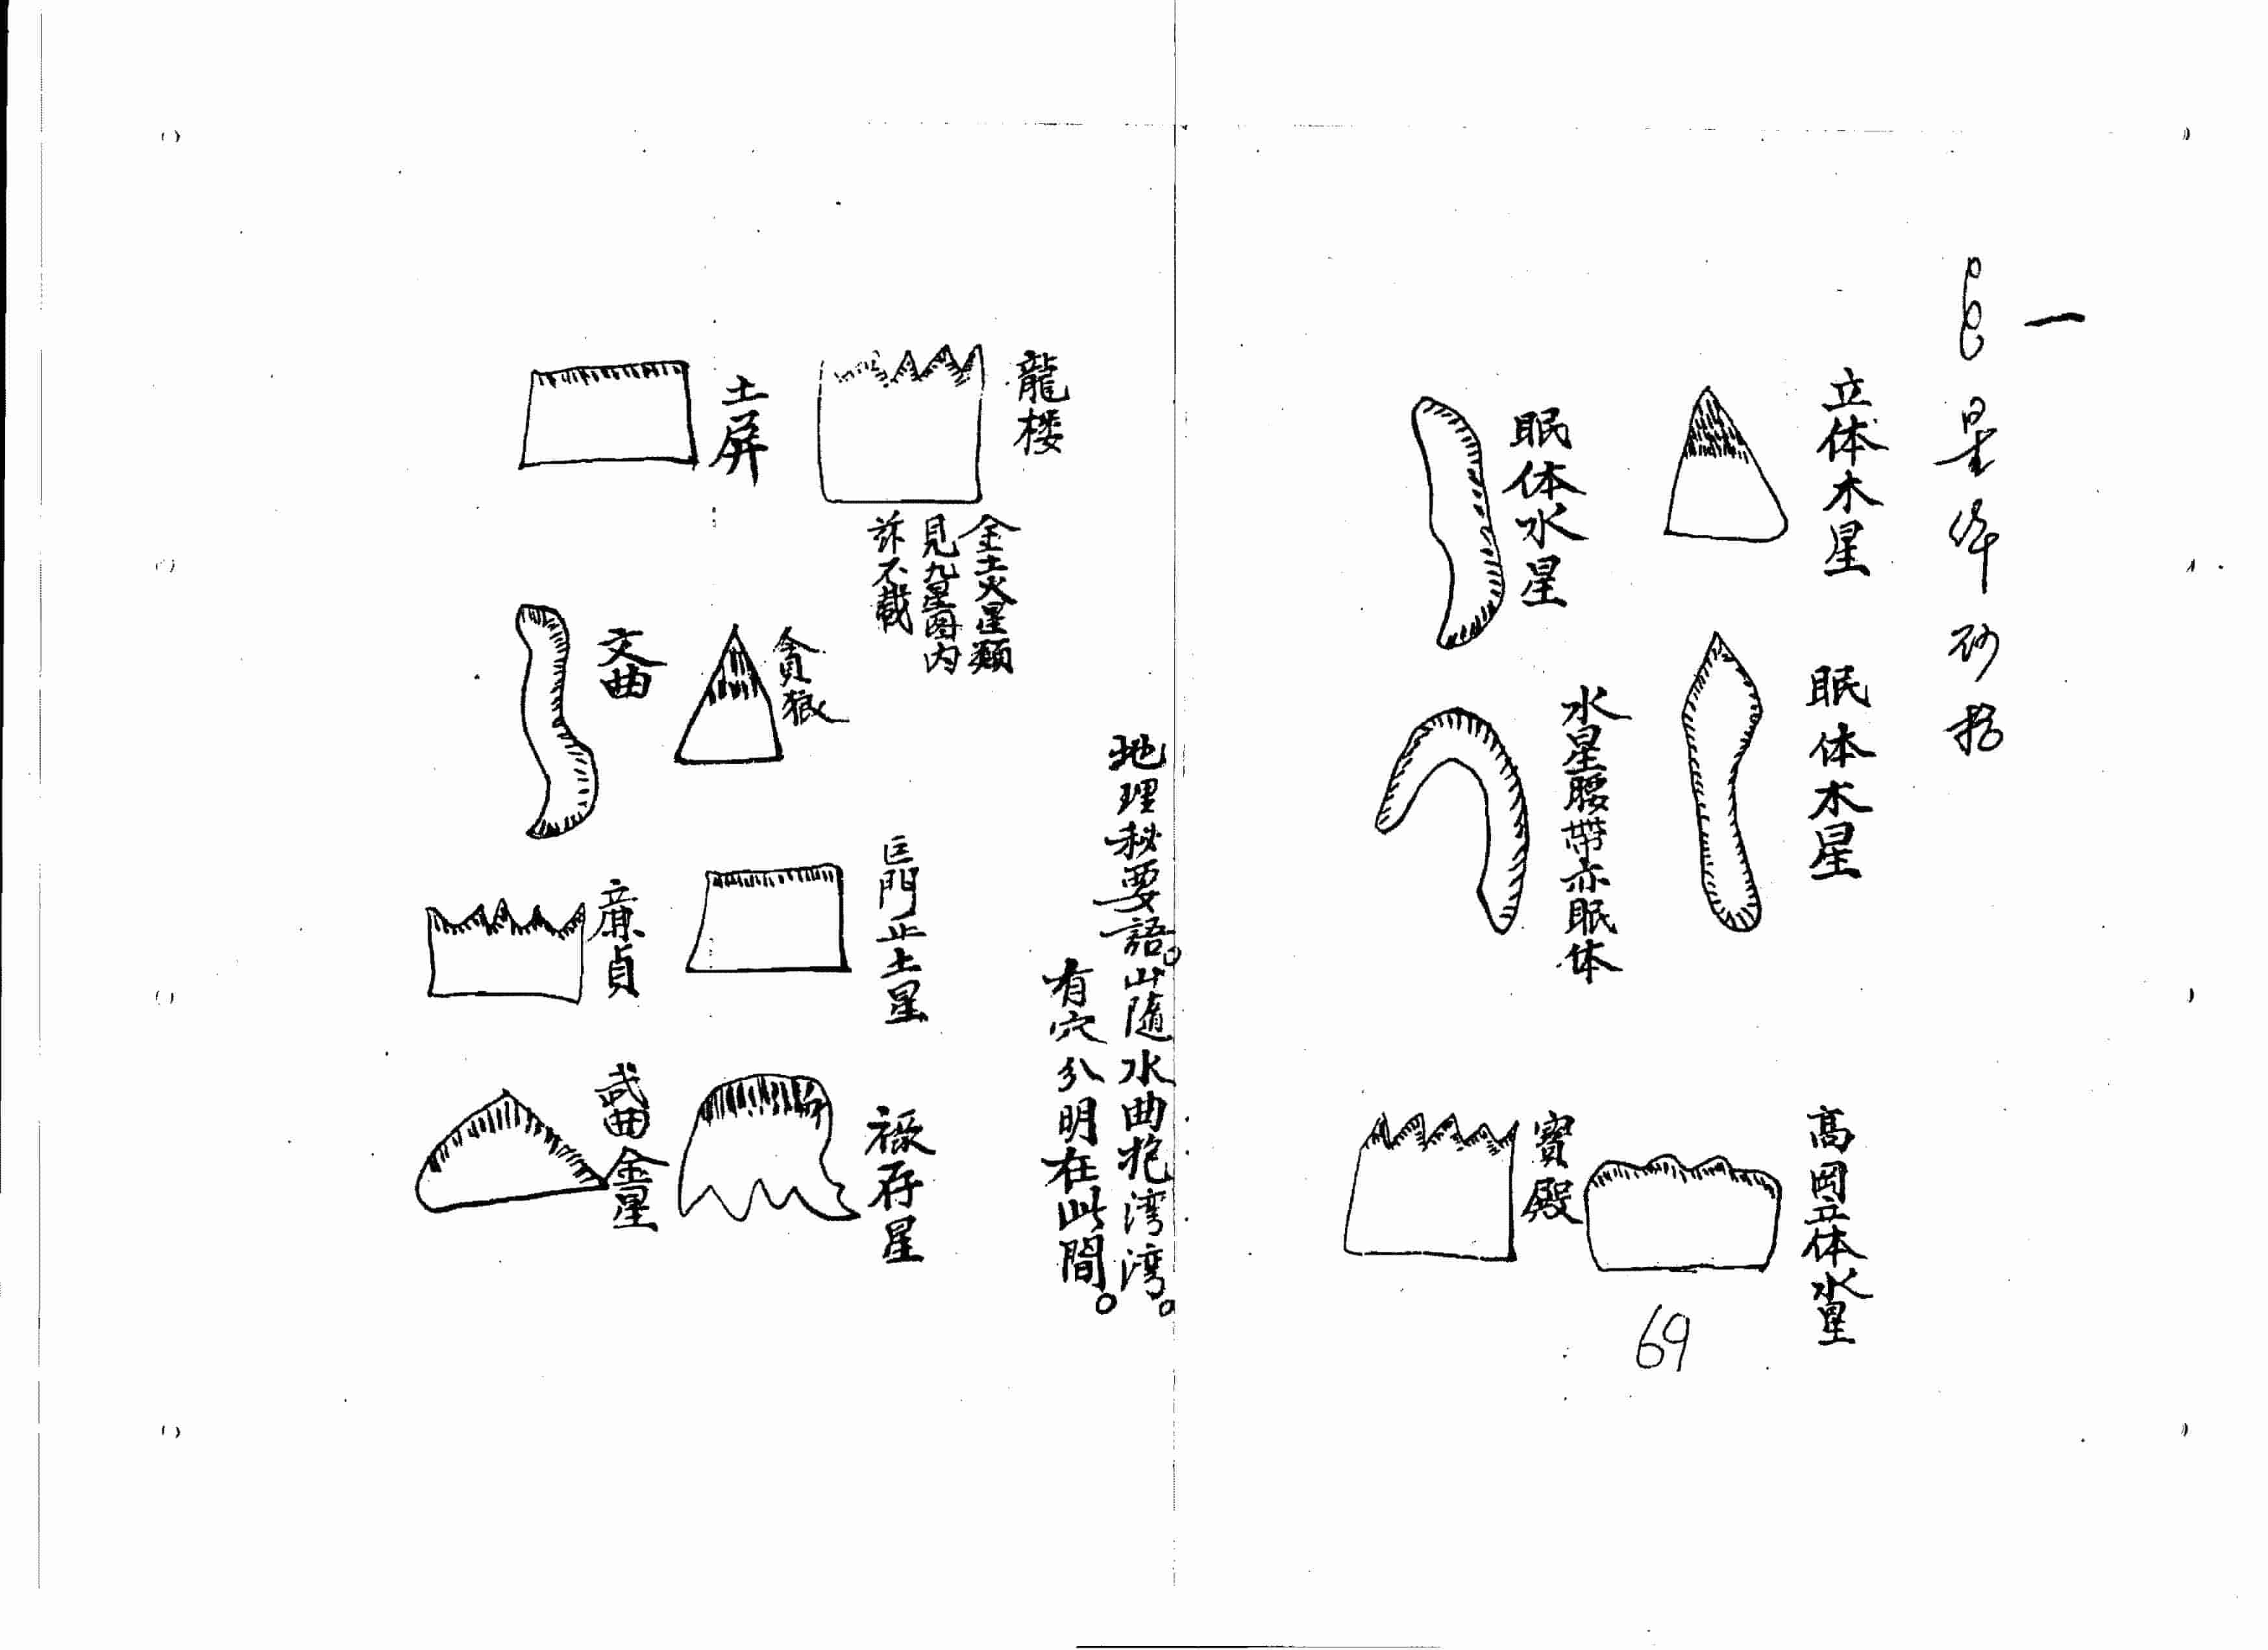 一
星峰砂格
立体木星
眠体木星
高岡立体水星
眠体水星
水星腰帶亦眠体
寶殿
69
地理秘要語。山隨水曲抱湾湾。
有穴分明在此間。
龍楼
金土火星類
見九星圖内
許不載
土屏
貪狼
巨門正土星
禄存星
文曲
廉貞
武曲金星